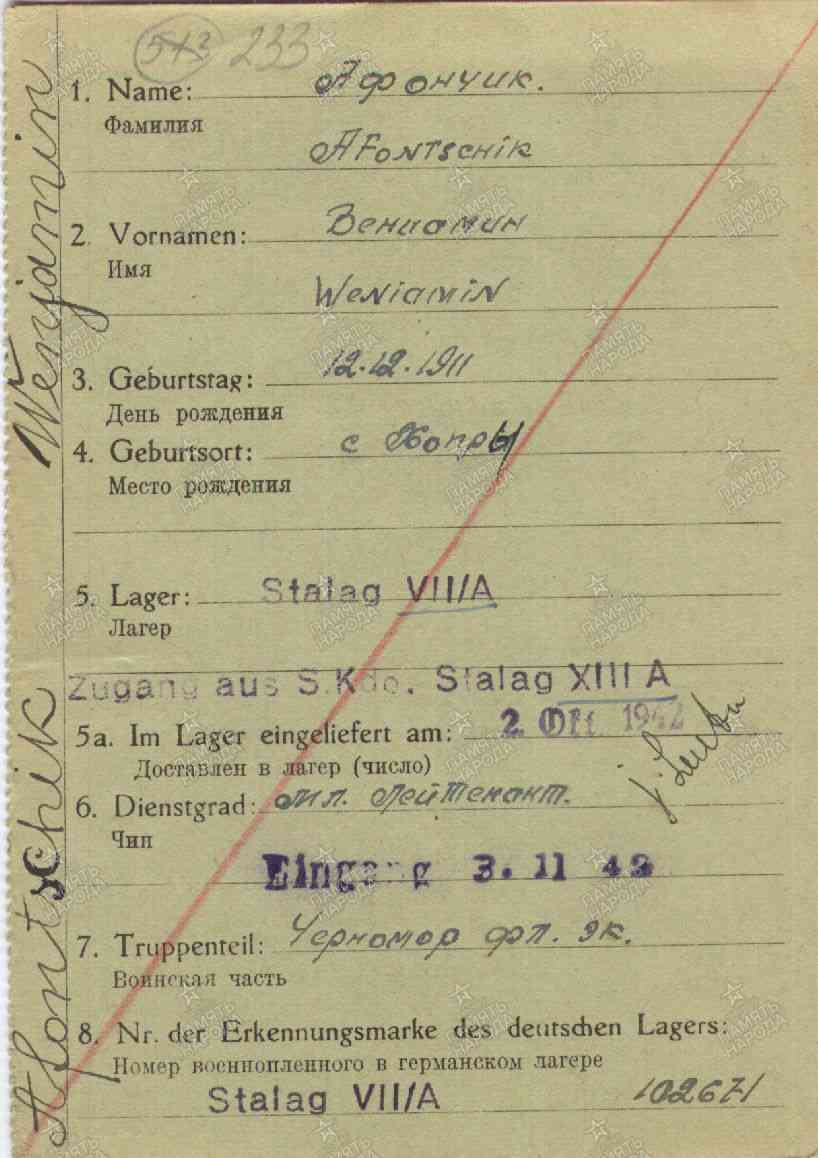 233
1. Name: Афончик.
Фамилия
AFONTSCHIK
2. Vornamen: Вениамин
Имя
WENIAMIN
3. Geburtstag: 12.12.1911
День рождения
4. Geburtsort: с Хопры
Место рождения
5. Lager: Stalag VII/A
Лагер
Zugang aus S.Kdo. Stalag XIII A
5a. Im Lager eingeliefert am: 2. Okt. 1942
Доставлен в лагер (число)
6. Dienstgrad: Мл. Лейтенант.
Чин
Eingang 3. 11 42
7. Truppenteil: Черномор фл. эк.
Воинская часть
8. Nr. der Erkennungsmarke des deutschen Lagers:
Номер военнопленного в германском лагере
Stalag VII/A 102671
Afontschik Wenjamin
ПАМЯТЬ НАРОДА